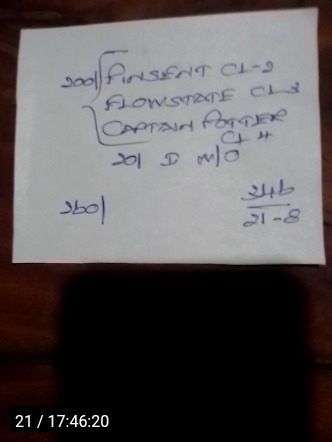 200/ PINSENT CL-2
FLOWSTATE CL3
CAPTAIN POTTER
CL 4
201 D M/O
260/
21-8
21 / 17:46:20